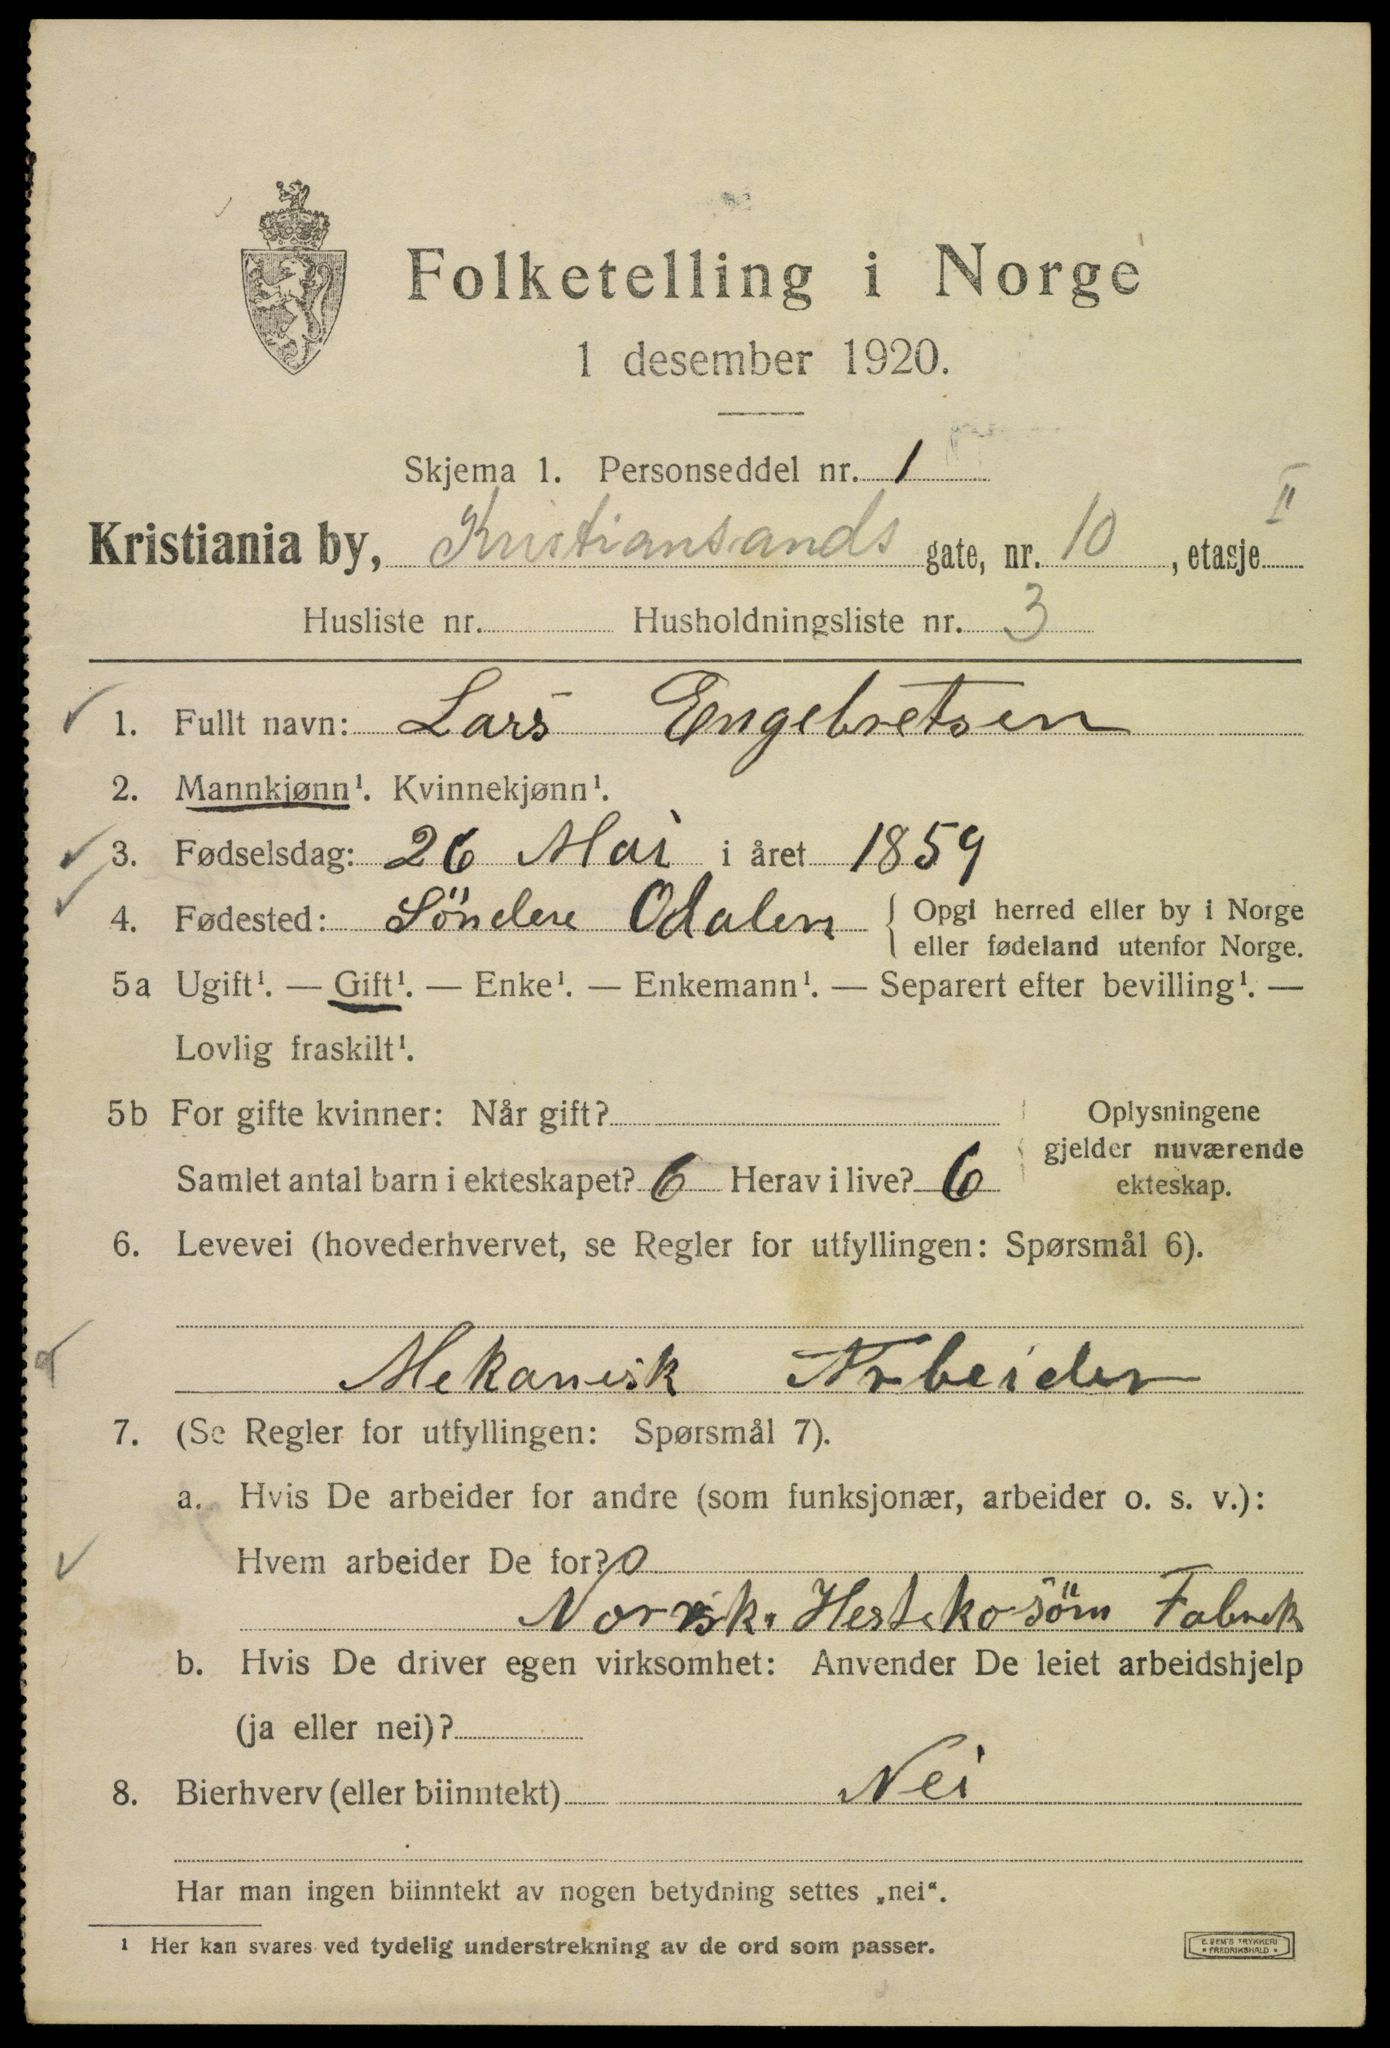 Folketelling i Norge
1 desember 1920.
Skjema 1. Personseddel nr. 1
Kristiania by, Kristiansands gate, nr. 10, etasje II
Husliste nr. Husholdningsliste nr. 3
1. Fullt navn: Lars Engebretsen
2. Mannkjønn¹. Kvinnekjønn¹.
3. Fødselsdag: 26 Mai i året 1859
4. Fødested: Söndere Odalen { Opgi herred eller by i Norge
eller fødeland utenfor Norge.
5a Ugift¹. — Gift¹. — Enke¹. — Enkemann¹. — Separert efter bevilling¹. —
Lovlig fraskilt¹.
5b For gifte kvinner: Når gift? Oplysningene
gjelder nuværende
Samlet antal barn i ekteskapet? 6 Herav i live? 6 ekteskap.
6. Levevei (hovederhvervet, se Regler for utfyllingen: Spørsmål 6).
Mekanisk Arbeider
7. (Se Regler for utfyllingen: Spørsmål 7).
a. Hvis De arbeider for andre (som funksjonær, arbeider o. s. v.):
Hvem arbeider De for?
Norsk. Hesteko söm Fabrik
b. Hvis De driver egen virksomhet: Anvender De leiet arbeidshjelp
(ja eller nei)?
8. Bierhverv (eller biinntekt) Nei
Har man ingen biinntekt av nogen betydning settes „nei“.
¹ Her kan svares ved tydelig understrekning av de ord som passer.
E. SEM'S TRYKKERI
• FREDRIKSHALD •